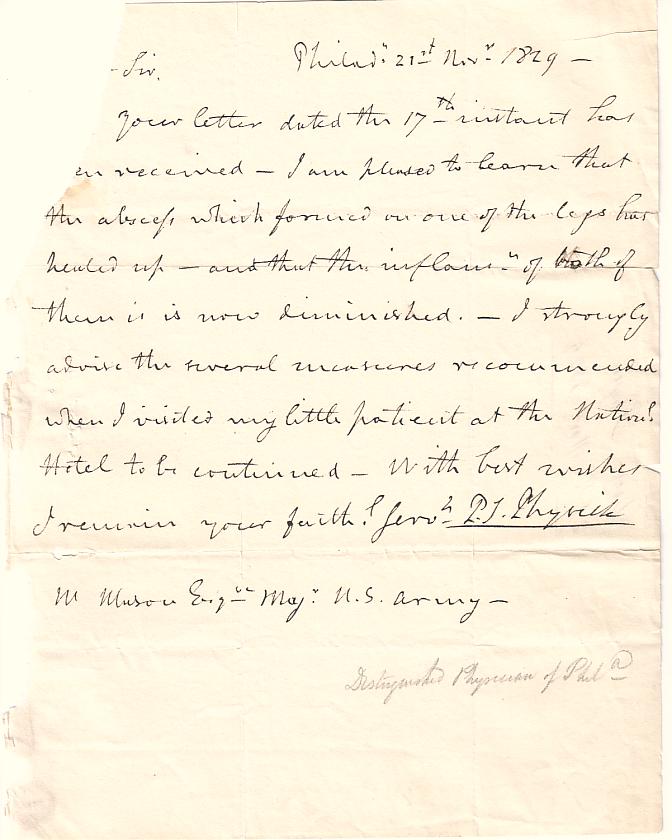 Sir, Philad.ᵃ 21ˢᵗ Nov.ʳ 1829 —
your letter dated the 17ᵗʰ instant has
en received — I am pleased to learn that
the abscess which formed on one of the legs has
healed up — and that the inflam.ⁿ of both of
them is is now diminished. — I strongly
advise the several measures recommended
when I visited my little patient at the National
Hotel to be continued — With best wishes
I remain your faith.ˡ Serv.ᵗ P. S. Physick
M Mason Esq.ʳᵉ Maj.ʳ U.S. army —
Distinguished Physician of Philᵃ